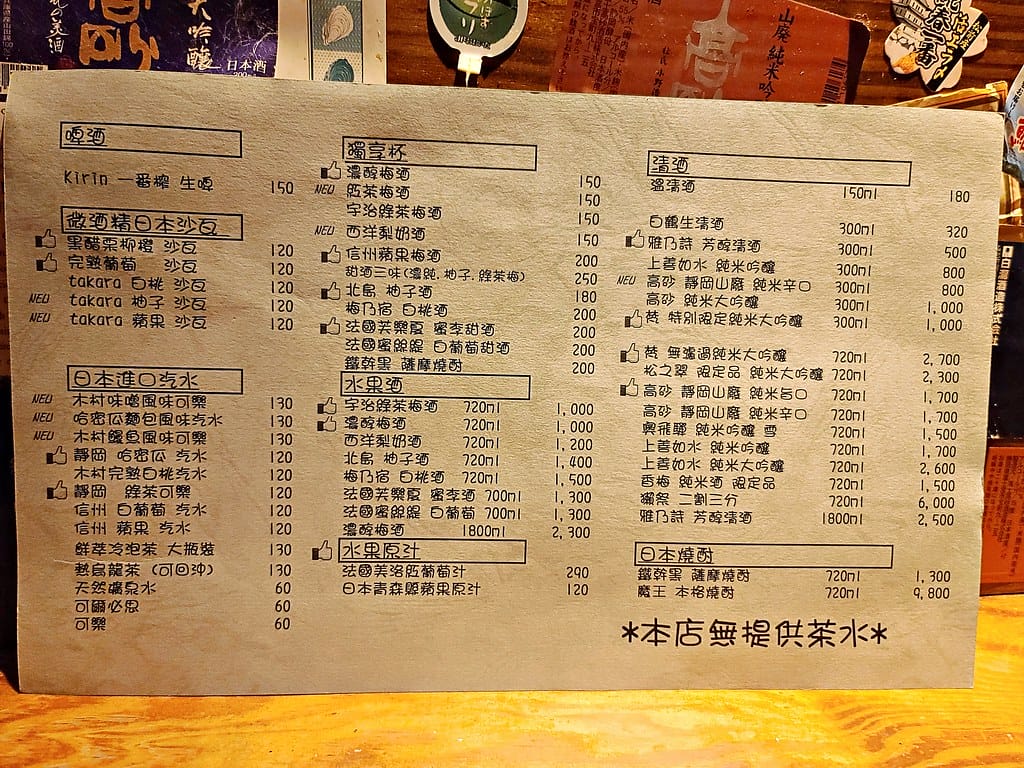 大吟醸
日本酒
山廃 純米吟
啤酒
Kirin 一番榨 生啤 150
微酒精日本沙瓦
黑醋栗柳橙 沙瓦 120
完熟葡萄 沙瓦 120
takara 白桃 沙瓦 120
NEW takara 柚子 沙瓦 120
NEW takara 蘋果 沙瓦 120
日本進口汽水
NEW 木村味噌風味可樂 130
NEW 哈密瓜麵包風味汽水 130
NEW 木村鰻魚風味可樂 130
靜岡 哈密瓜 汽水 120
木村完熟白桃汽水 120
靜岡 綠茶可樂 120
信州 白葡萄 汽水 120
信州 蘋果 汽水 120
鮮萃冷泡茶 大瓶裝 130
熱烏龍茶 (可回沖) 130
天然礦泉水 60
可爾必思 60
可樂 60
獨享杯
濃醇梅酒 150
NEW 紅茶梅酒 150
宇治綠茶梅酒 150
NEW 西洋梨奶酒 150
信州蘋果梅酒 200
甜酒三味(濃純.柚子.綠茶梅) 250
北島 柚子酒 180
梅乃宿 白桃酒 200
法國芙樂夏 蜜李甜酒 200
法國蜜絲緹 白葡萄甜酒 200
鐵幹黑 薩摩燒酎 200
水果酒
宇治綠茶梅酒 720ml 1,000
濃醇梅酒 720ml 1,000
西洋梨奶酒 720ml 1,200
北島 柚子酒 720ml 1,400
梅乃宿 白桃酒 720ml 1,500
法國芙樂夏 蜜李酒 700ml 1,300
法國蜜絲緹 白葡萄 700ml 1,300
濃醇梅酒 1800ml 2,300
水果原汁
法國美洛紅葡萄汁 290
日本青森縣蘋果原汁 120
清酒
溫清酒 150ml 180
白鶴生清酒 300ml 320
雅乃詩 芳醇清酒 300ml 500
上善如水 純米吟釀 300ml 800
NEW 高砂 靜岡山廢 純米辛口 300ml 800
高砂 純米大吟釀 300ml 1,000
梵 特別限定純米大吟釀 300ml 1,000
梵 無濾過純米大吟釀 720ml 2,700
松之翠 限定品 純米大吟釀 720ml 2,300
高砂 靜岡山廢 純米旨口 720ml 1,700
高砂 靜岡山廢 純米辛口 720ml 1,700
興飛驒 純米吟釀 雪 720ml 1,500
上善如水 純米吟釀 720ml 1,700
上善如水 純米大吟釀 720ml 2,600
香梅 純米酒 限定品 720ml 1,500
獺祭 二割三分 720ml 6,000
雅乃詩 芳醇清酒 1800ml 2,500
日本燒酎
鐵幹黑 薩摩燒酎 720ml 1,300
魔王 本格燒酎 720ml 9,800
*本店無提供茶水*